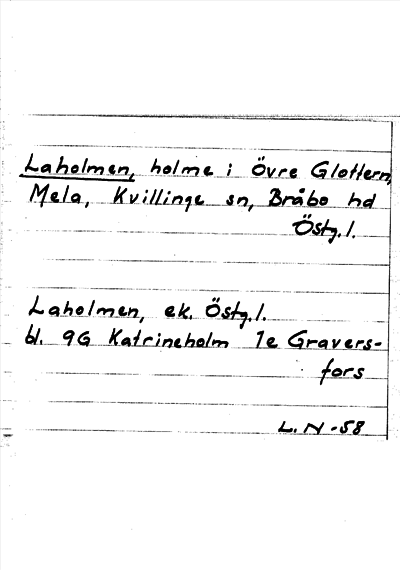 Laholmen, holme i Övre Glottern,
Mela, Kvillinge sn, Bråbo hd
Östg.l.
Laholmen, ek. Östg.l.
bl. 9G Katrineholm 1e Gravers-
fors
L. N -58